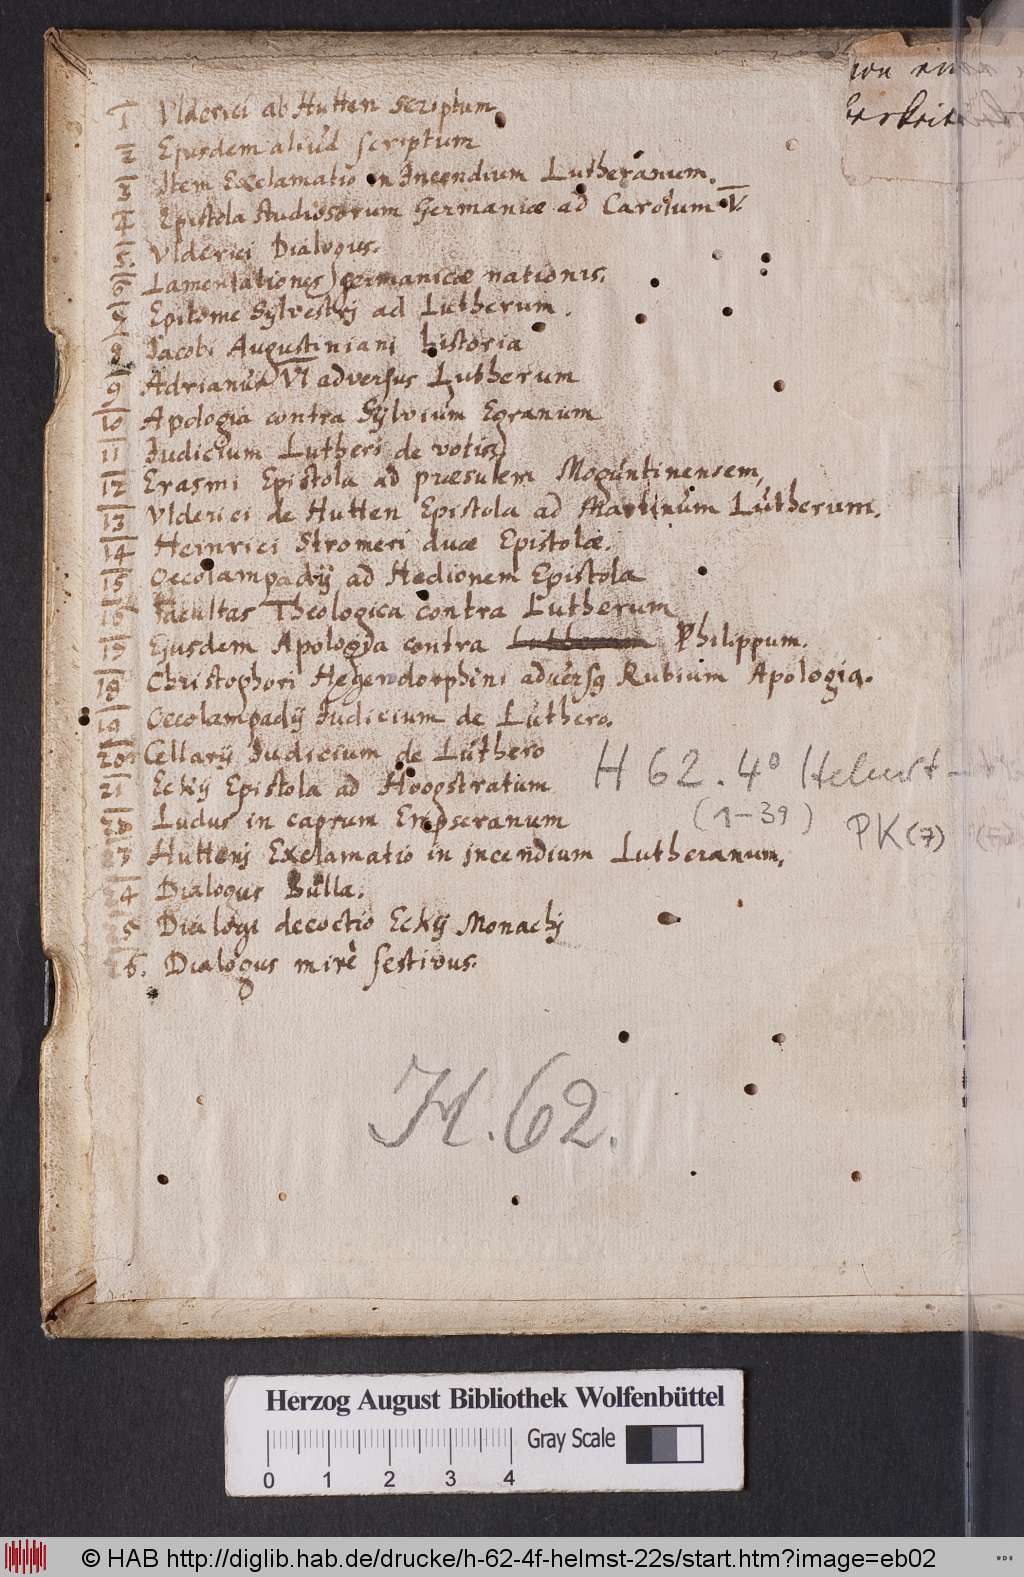 1 Vlderici ab Hutten scriptum
2 Ejusdem aliúd scriptum
3 Item Exclamatio in Incendium Lutheranum.
4 Epistola studiosorum Germaniæ ad Carolum V.
5. Vlderici Dialogus.
6 Lamentationes Germanicæ nationis.
7 Epitome Sylvestrj ad Lutherum.
8 Jacobi Augustiniani historia
9 Adrianús VI adversus Lutherum
10 Apologia contra Sylvium Egranum
11 Judicium Lutheri de votis
12 Erasmi Epistola ad præsulem Mogúntinensem,
13 Vlderici de Hutten Epistola ad Martinúm Lútherum.
14 Heinrici Stromeri duæ Epistolæ.
15 Oecolampadij ad Hedionem Epistola
16 Facultas Theologica contra Lutherum
17 Ejusdem Apologia contra Philippum.
18 Christophori Hegendorphini advérsq Rubium Apologia.
19 Oecolampadij Judicium de Lúthero.
20. Cellarij Judicium de Lúthero
21 Eckij Epistola ad Hoogstratum
22 Ludus in caprum Empseranum
23 Huttenj Exclamatio in jncendium Lutheranum,
24 Dialogus Bulla.
25 Dialogi decoctio Eckij Monachj
26. Dialogus mirè festivus.
H 62. 4° Helmst
(1-39)
PK (7)
H. 62.
Herzog August Bibliothek Wolfenbüttel
Gray Scale
0 1 2 3 4
© HAB http://diglib.hab.de/drucke/h-62-4f-helmst-22s/start.htm?image=eb02